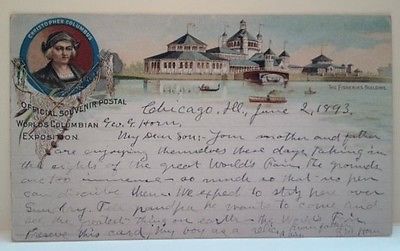 CHRISTOPHER COLUMBUS
THE FISHERIES BUILDING.
OFFICIAL SOUVENIR POSTAL
WORLDS COLUMBIAN
EXPOSITION.
Chicago, Ill, June 2, 1893.
Geo. G. Horn.
My Dear Son:- Your mother and father
are enjoying themselves these days, taking in
the sights of the great World's Fair, the grounds
are too immense so much so that no pen
can describe them. We expect to stay here over
Sunday. Tell grandpa he wants to come and
see the greatest thing on earth - the World's Fair
Preserve this card, my boy as a